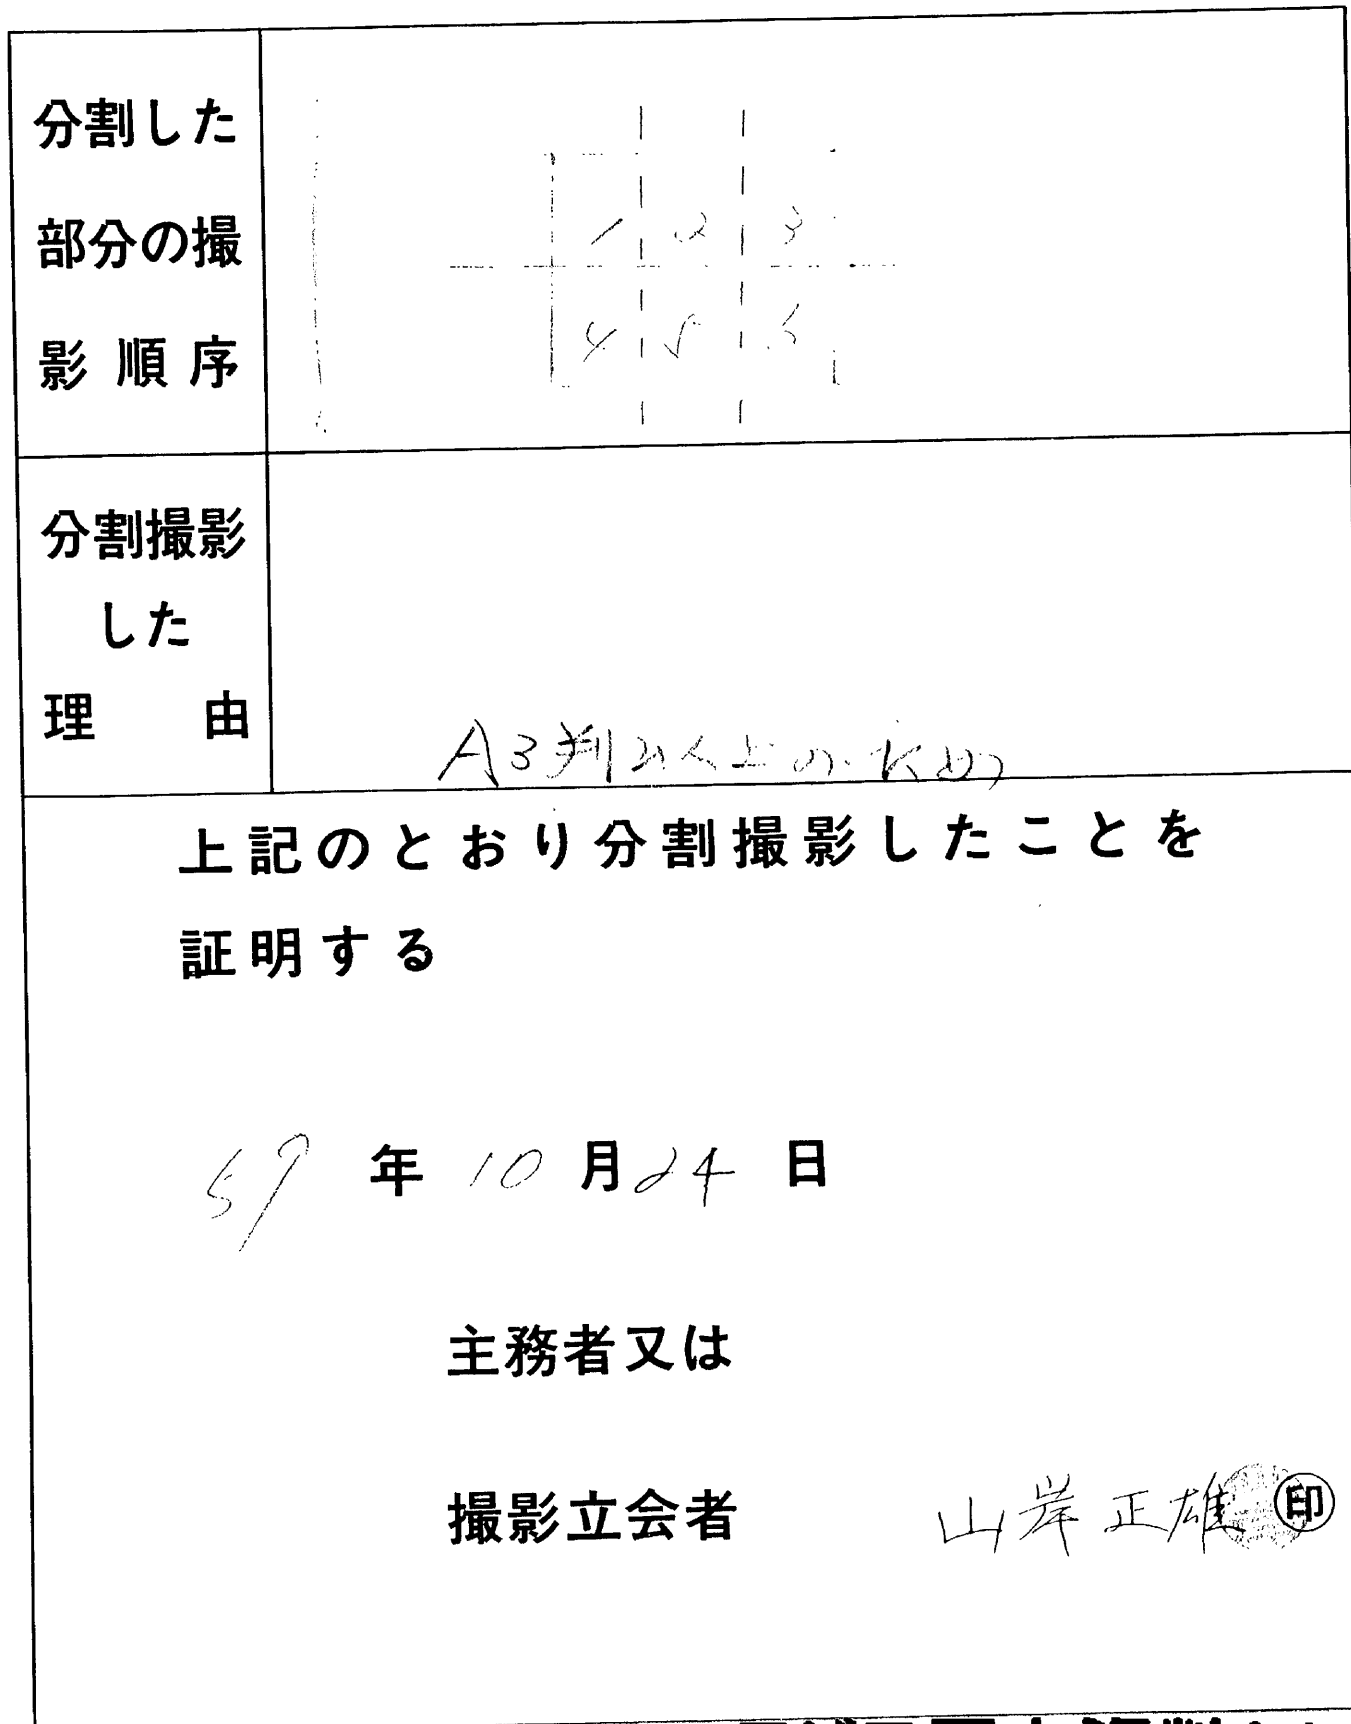 分割した
部分の撮
影順序
1 2 3
4 5 6
分割撮影
した
理由
A3判以上のため
上記のとおり分割撮影したことを
証明する
59年10月24日
主務者又は
撮影立会者 山岸正雄 印